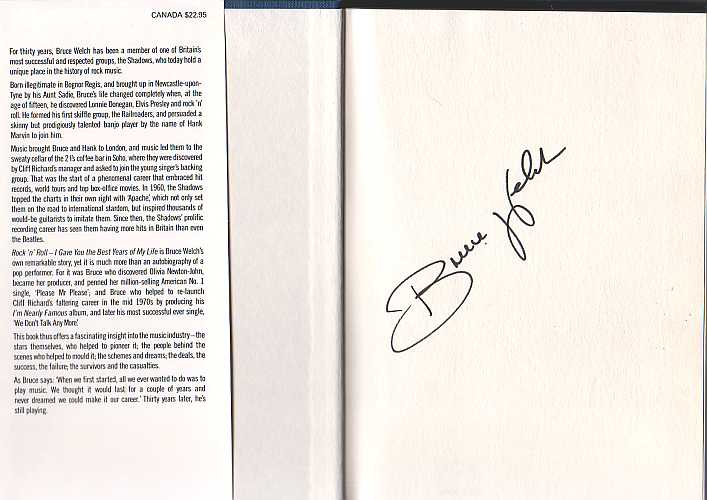 CANADA $22.95
For thirty years, Bruce Welch has been a member of one of Britain's
most successful and respected groups, the Shadows, who today hold a
unique place in the history of rock music.
Born illegitimate in Bognor Regis, and brought up in Newcastle-upon-
Tyne by his Aunt Sadie, Bruce's life changed completely when, at the
age of fifteen, he discovered Lonnie Donegan, Elvis Presley and rock 'n'
roll. He formed his first skiffle group, the Railroaders, and persuaded a
skinny but prodigiously talented banjo player by the name of Hank
Marvin to join him.
Music brought Bruce and Hank to London, and music led them to the
sweaty cellar of the 2 I's coffee bar in Soho, where they were discovered
by Cliff Richard's manager and asked to join the young singer's backing
group. That was the start of a phenomenal career that embraced hit
records, world tours and top box-office movies. In 1960, the Shadows
topped the charts in their own right with 'Apache', which not only set
them on the road to international stardom, but inspired thousands of
would-be guitarists to imitate them. Since then, the Shadows' prolific
recording career has seen them having more hits in Britain than even
the Beatles.
Rock 'n' Roll – I Gave You the Best Years of My Life is Bruce Welch's
own remarkable story, yet it is much more than an autobiography of a
pop performer. For it was Bruce who discovered Olivia Newton-John,
became her producer, and penned her million-selling American No. 1
single, 'Please Mr Please'; and Bruce who helped to re-launch
Cliff Richard's faltering career in the mid 1970s by producing his
I'm Nearly Famous album, and later his most successful ever single,
'We Don't Talk Any More'.
This book thus offers a fascinating insight into the music industry – the
stars themselves, who helped to pioneer it; the people behind the
scenes who helped to mould it; the schemes and dreams; the deals, the
success, the failure; the survivors and the casualties.
As Bruce says: 'When we first started, all we ever wanted to do was to
play music. We thought it would last for a couple of years and
never dreamed we could make it our career.' Thirty years later, he's
still playing.
Bruce Welch